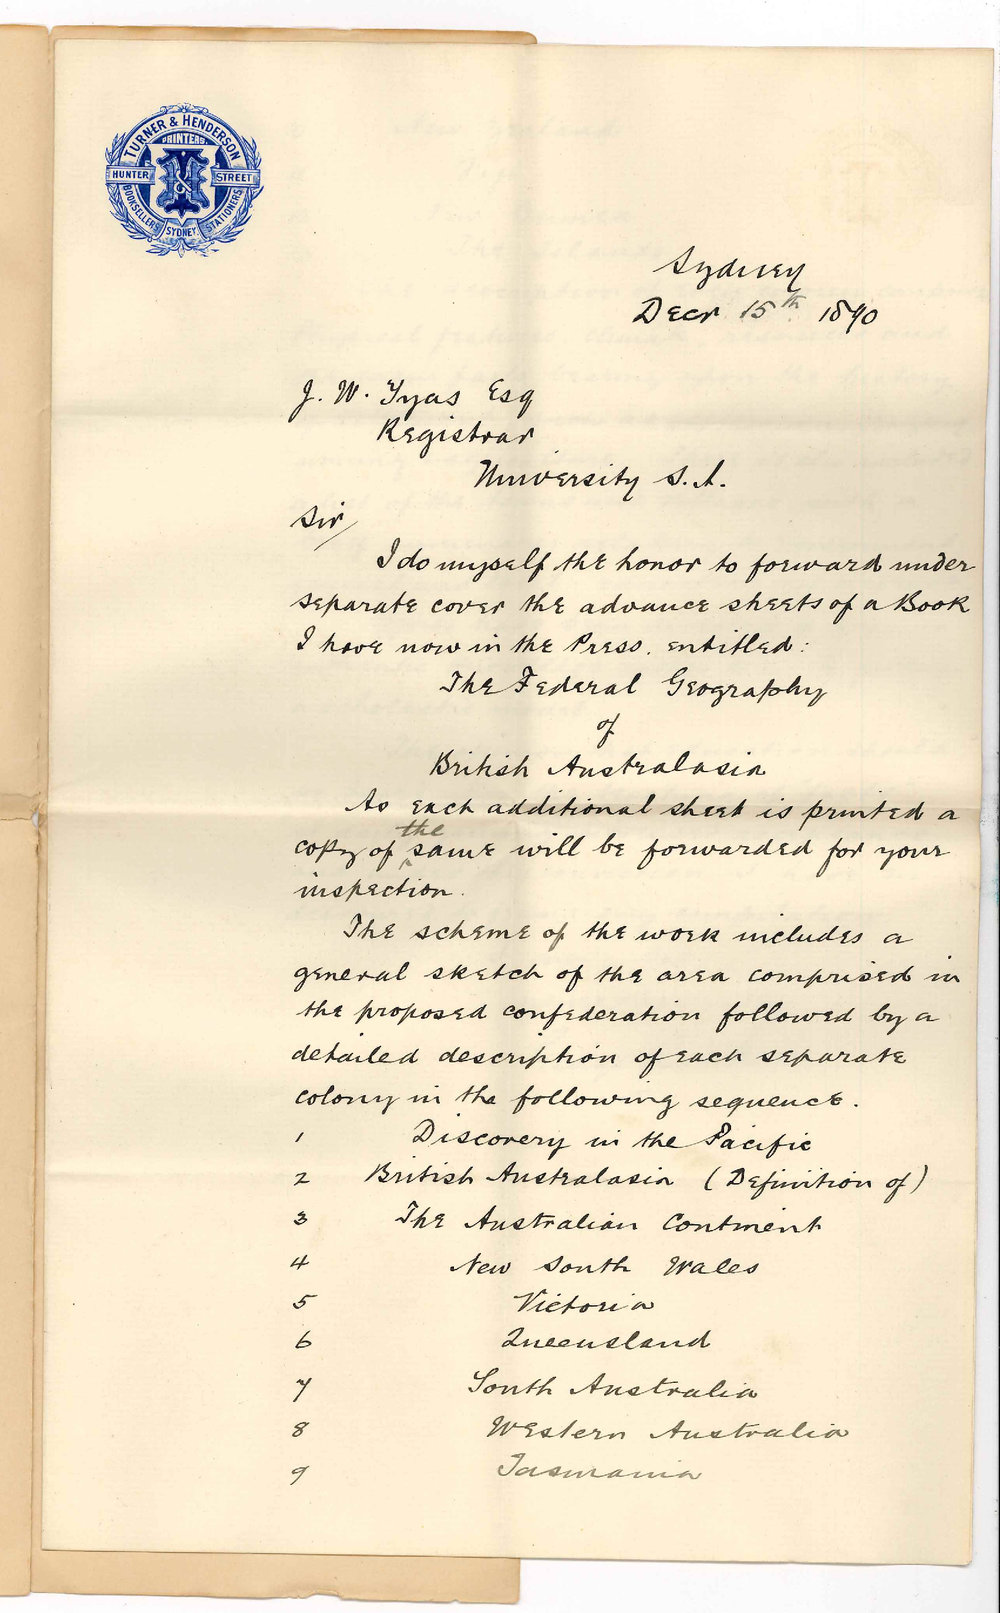 TURNER & HENDERSON
PRINTERS.
HUNTER STREET
BOOKSELLERS SYDNEY. STATIONERS.
Sydney
Decr 15th 1890
J. W. Tyas Esq
Registrar
University S.A.
Sir/
I do myself the honor to forward under
separate cover the advance sheets of a Book
I have now in the Press. entitled:
The Federal Geography
of
British Australasia
As each additional sheet is printed a
copy of the same will be forwarded for your
inspection.
The scheme of the work includes a
general sketch of the area comprised in
the proposed confederation followed by a
detailed description of each separate
colony in the following sequence.
1 Discovery in the Pacific
2 British Australasia (Definition of)
3 The Australian Continent
4 New South Wales
5 Victoria
6 Queensland
7 South Australia
8 Western Australia
9 Tasmania